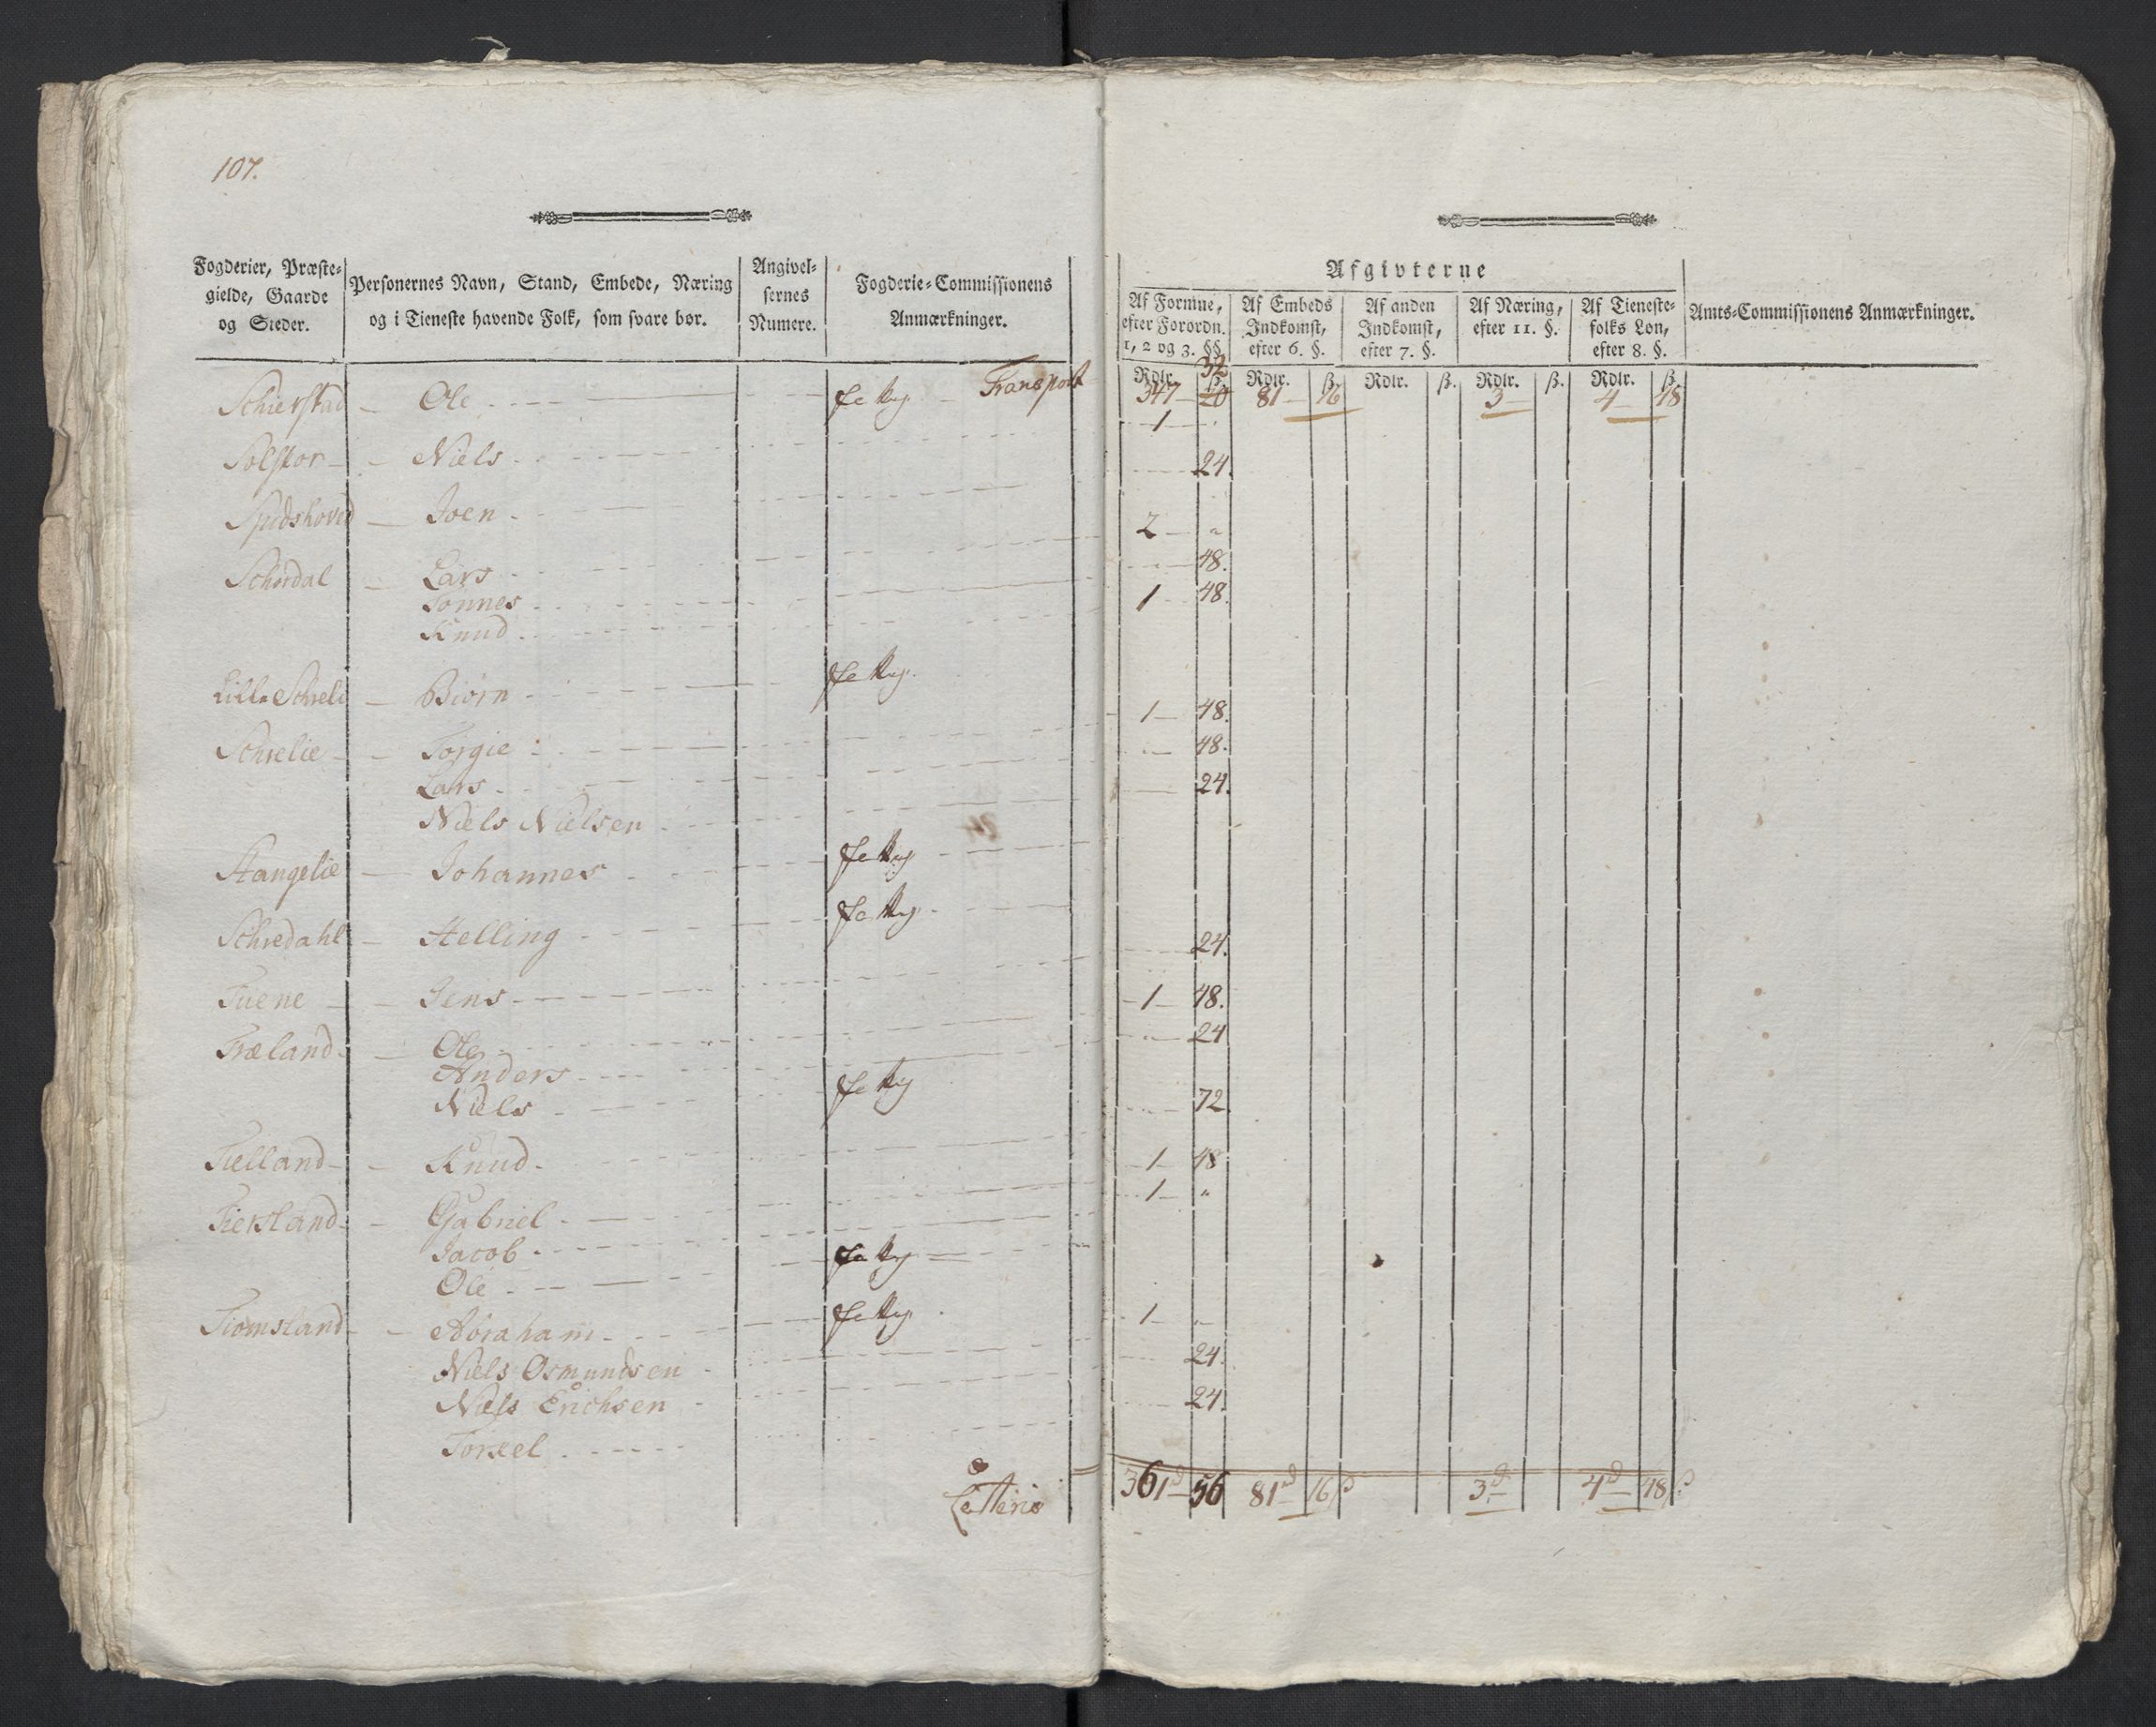 107.
Fogderier, Præste-
gielde, Gaarde
og Steder.
Personernes Navn, Stand, Embede, Næring
og i Tieneste havende Folk, som svare bør.
Angivel-
sernes
Numere.
Fogderie-Commissionens
Anmærkninger.
Afgivterne
Af Formue,
efter Forordn.
1, 2 og 3. §§.
Af Embeds
Indkomst,
efter 6. §.
Af anden
Indkomst,
efter 7. §.
Af Næring,
efter 11. §.
Af Tieneste-
folks Løn,
efter 8. §.
Amts-Commissionens Anmærkninger.
Rdlr. ß. Rdlr. ß. Rdlr. ß. Rdlr. ß. Rdlr. ß.
Transport 347 20 32 81 16 3 4 48
Schierstad Ole
1
Solskor Niels 24.
Spidshoved Joen 2 "
Schørdal Lars 48.
Tønnes 1 48.
Knud
Lille Schreli Biørn 1 48.
Schrelie Torgie 48.
Lars 24.
Niels Nielsen
Stangelie Johannes
Schredahl Helling 24.
Tuene Jens 1 48.
Træland Ole 24
Anders
Niels 72
Tielland Knud 1 48
Tiersland Gabriel 1 "
Jacob
Ole
Tiomsland Abraham 1
Niels Osmundsen 24.
Niels Erichsen 24.
Torkel
Latteris 361 56 81 16 ß 3 4 48 ß